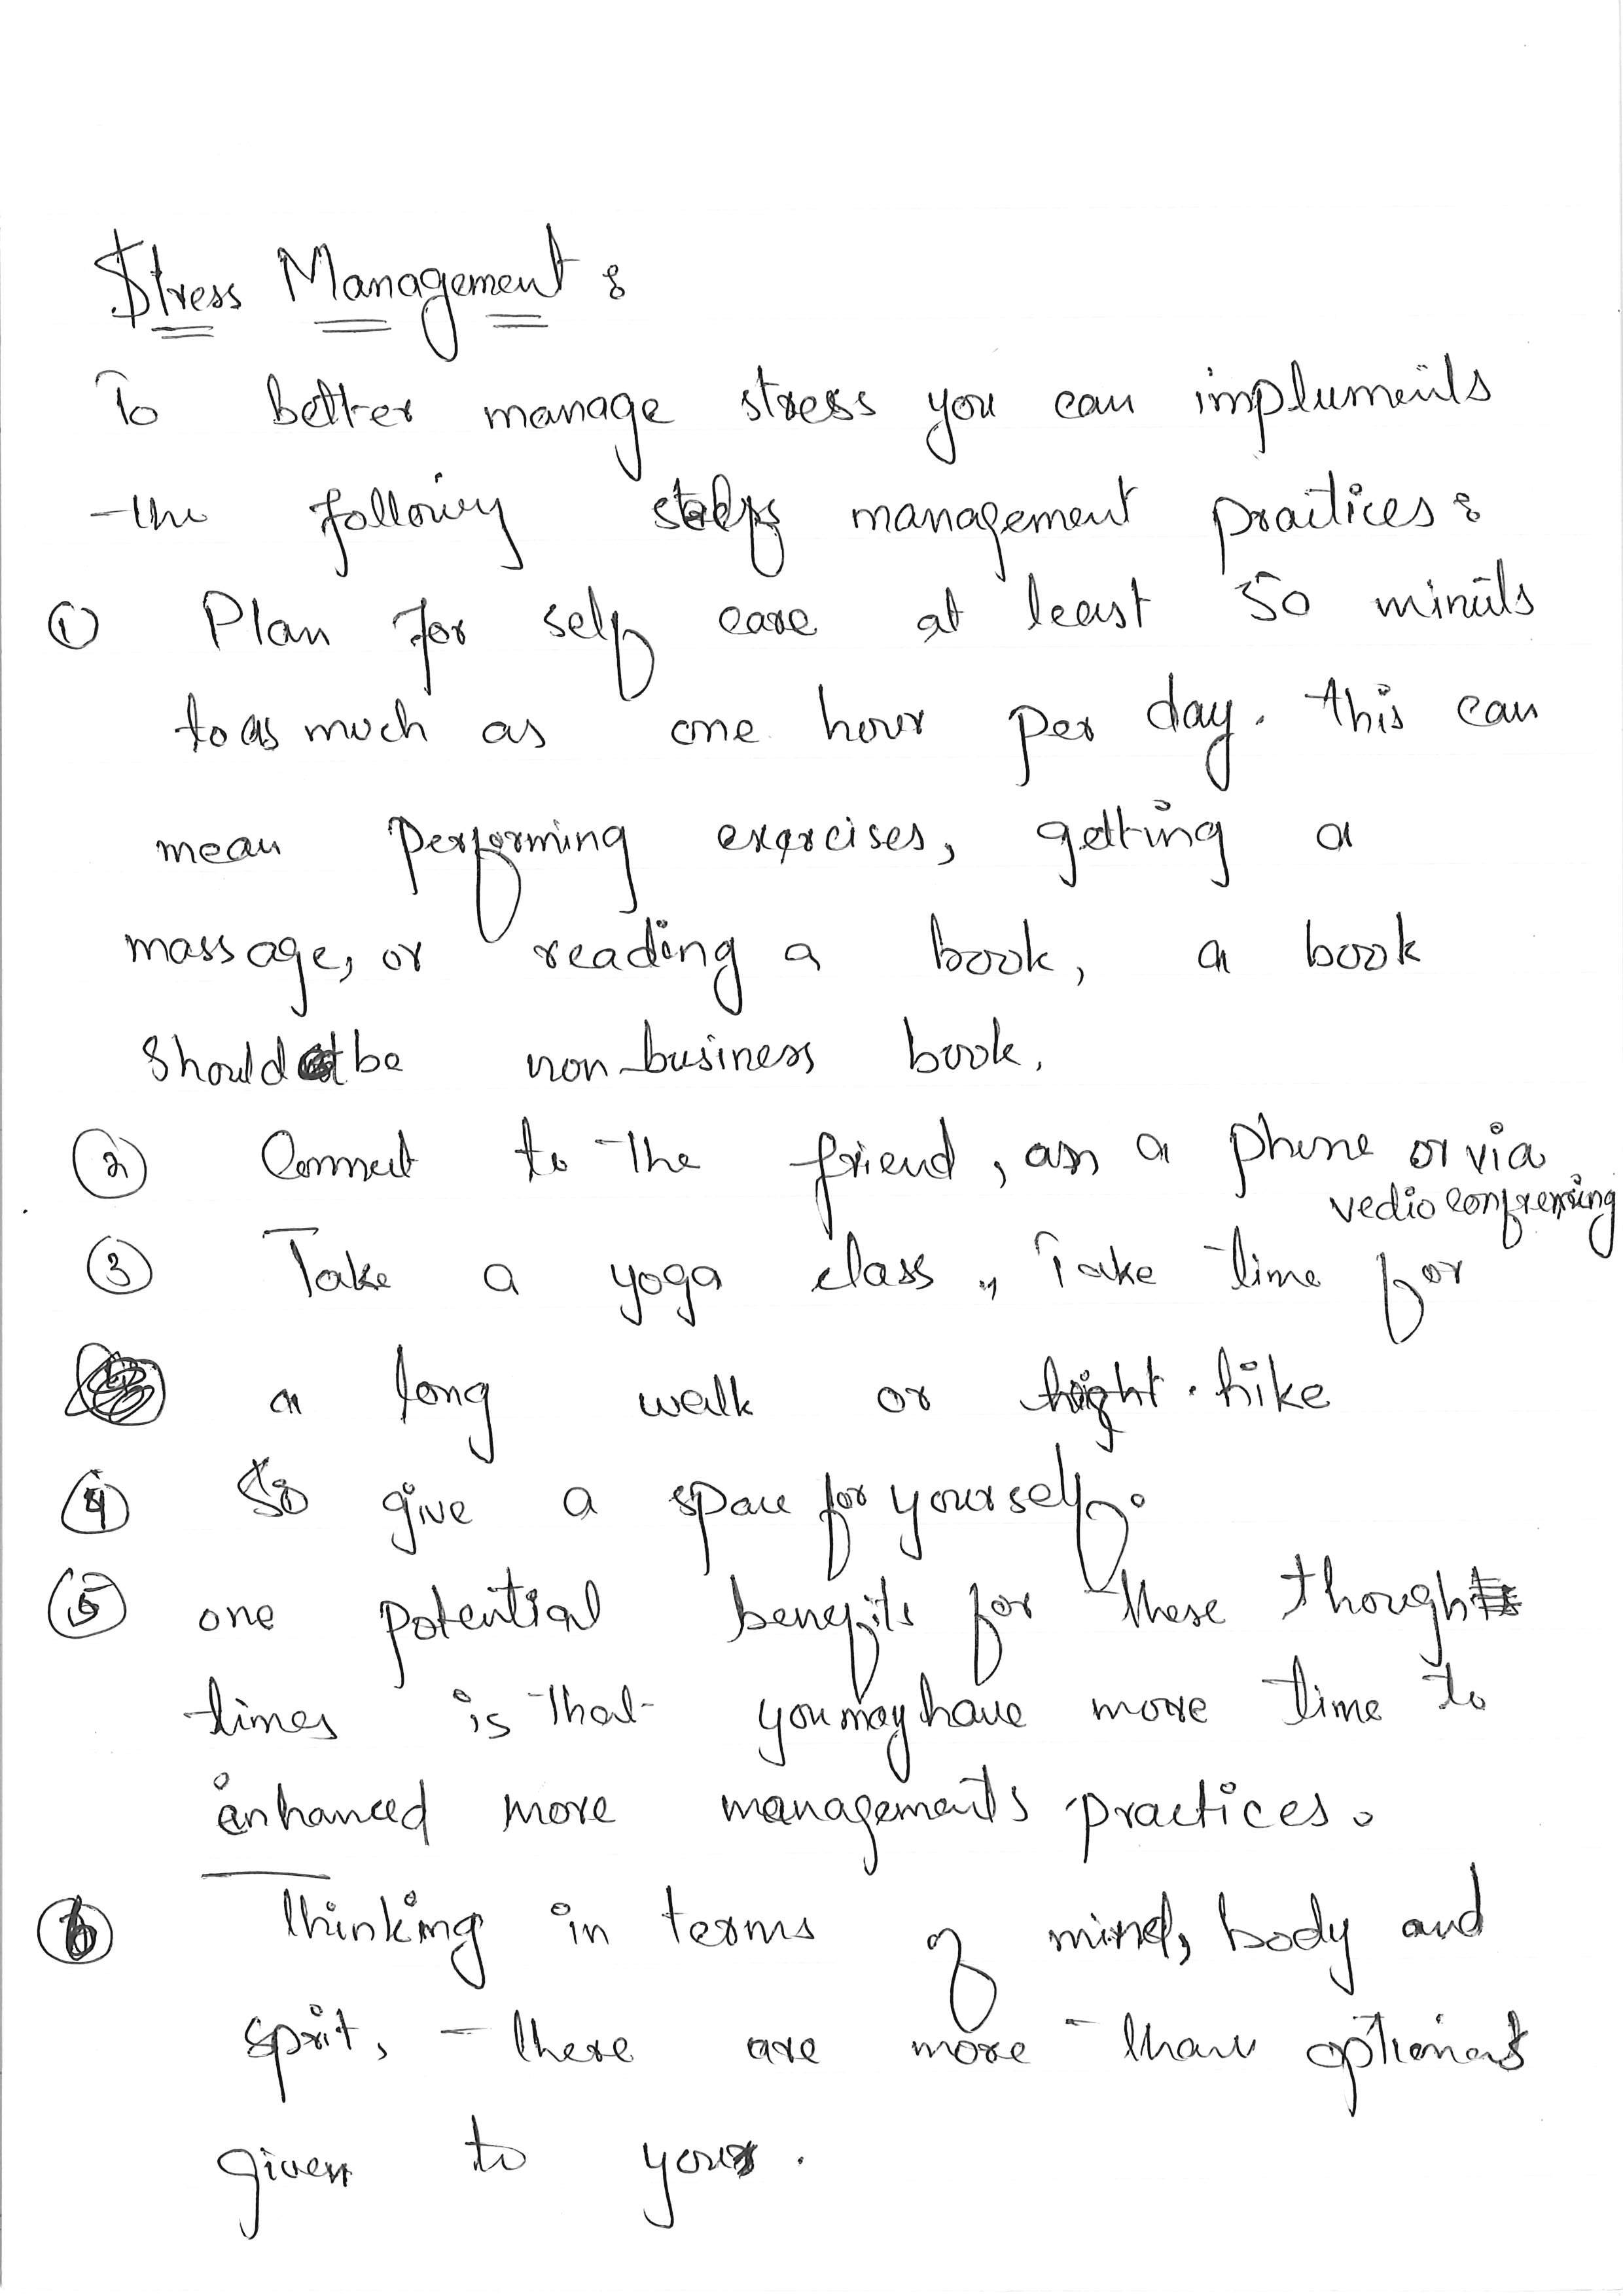 Stress Management :
To better manage stress you can impluments
the following steps management practices :
① Plan for self care at least 50 minuts
to as much as one hour per day. this can
mean performing exercises, getting a
massage, or reading a book, a book
should be non-business book.
② Connect to the friend, on a phone or via
vedio confrencing
③ Take a yoga class, Take time for
a long walk or hike
④ So give a space for yourself.
⑤ one potential benefits for these though
times is that you may have more time to
enhanced more managements practices.
⑥ Thinking in terms of mind, body and
sprit, there are more than options
given to you.